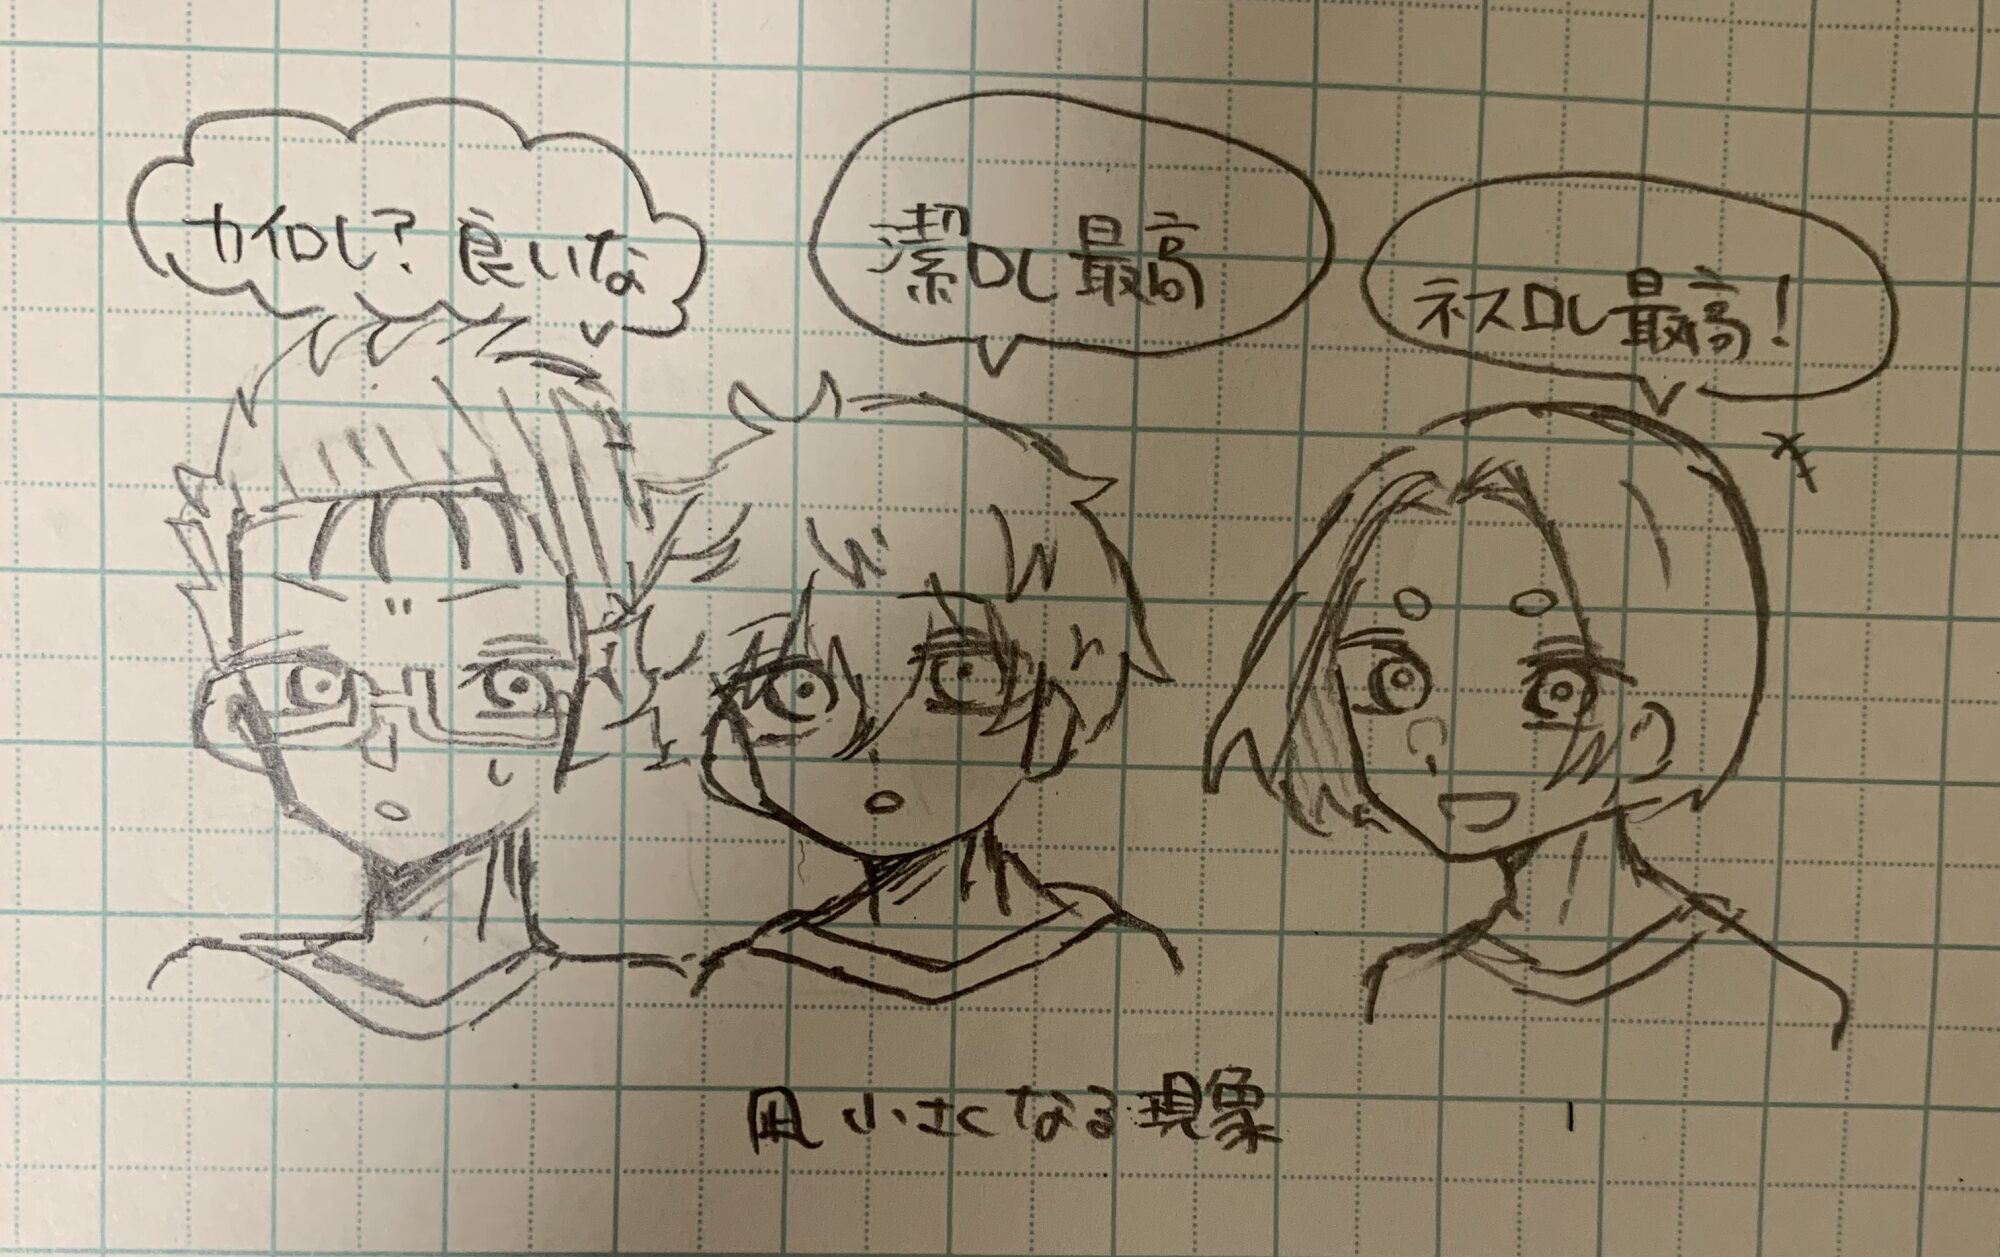 カイロし?良いな
潔ロし最高
ネスロし最高!
凪小さくなる現象